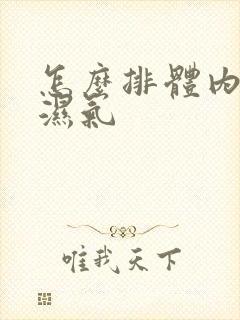 怎麼排體內
濕氣
唯我天下